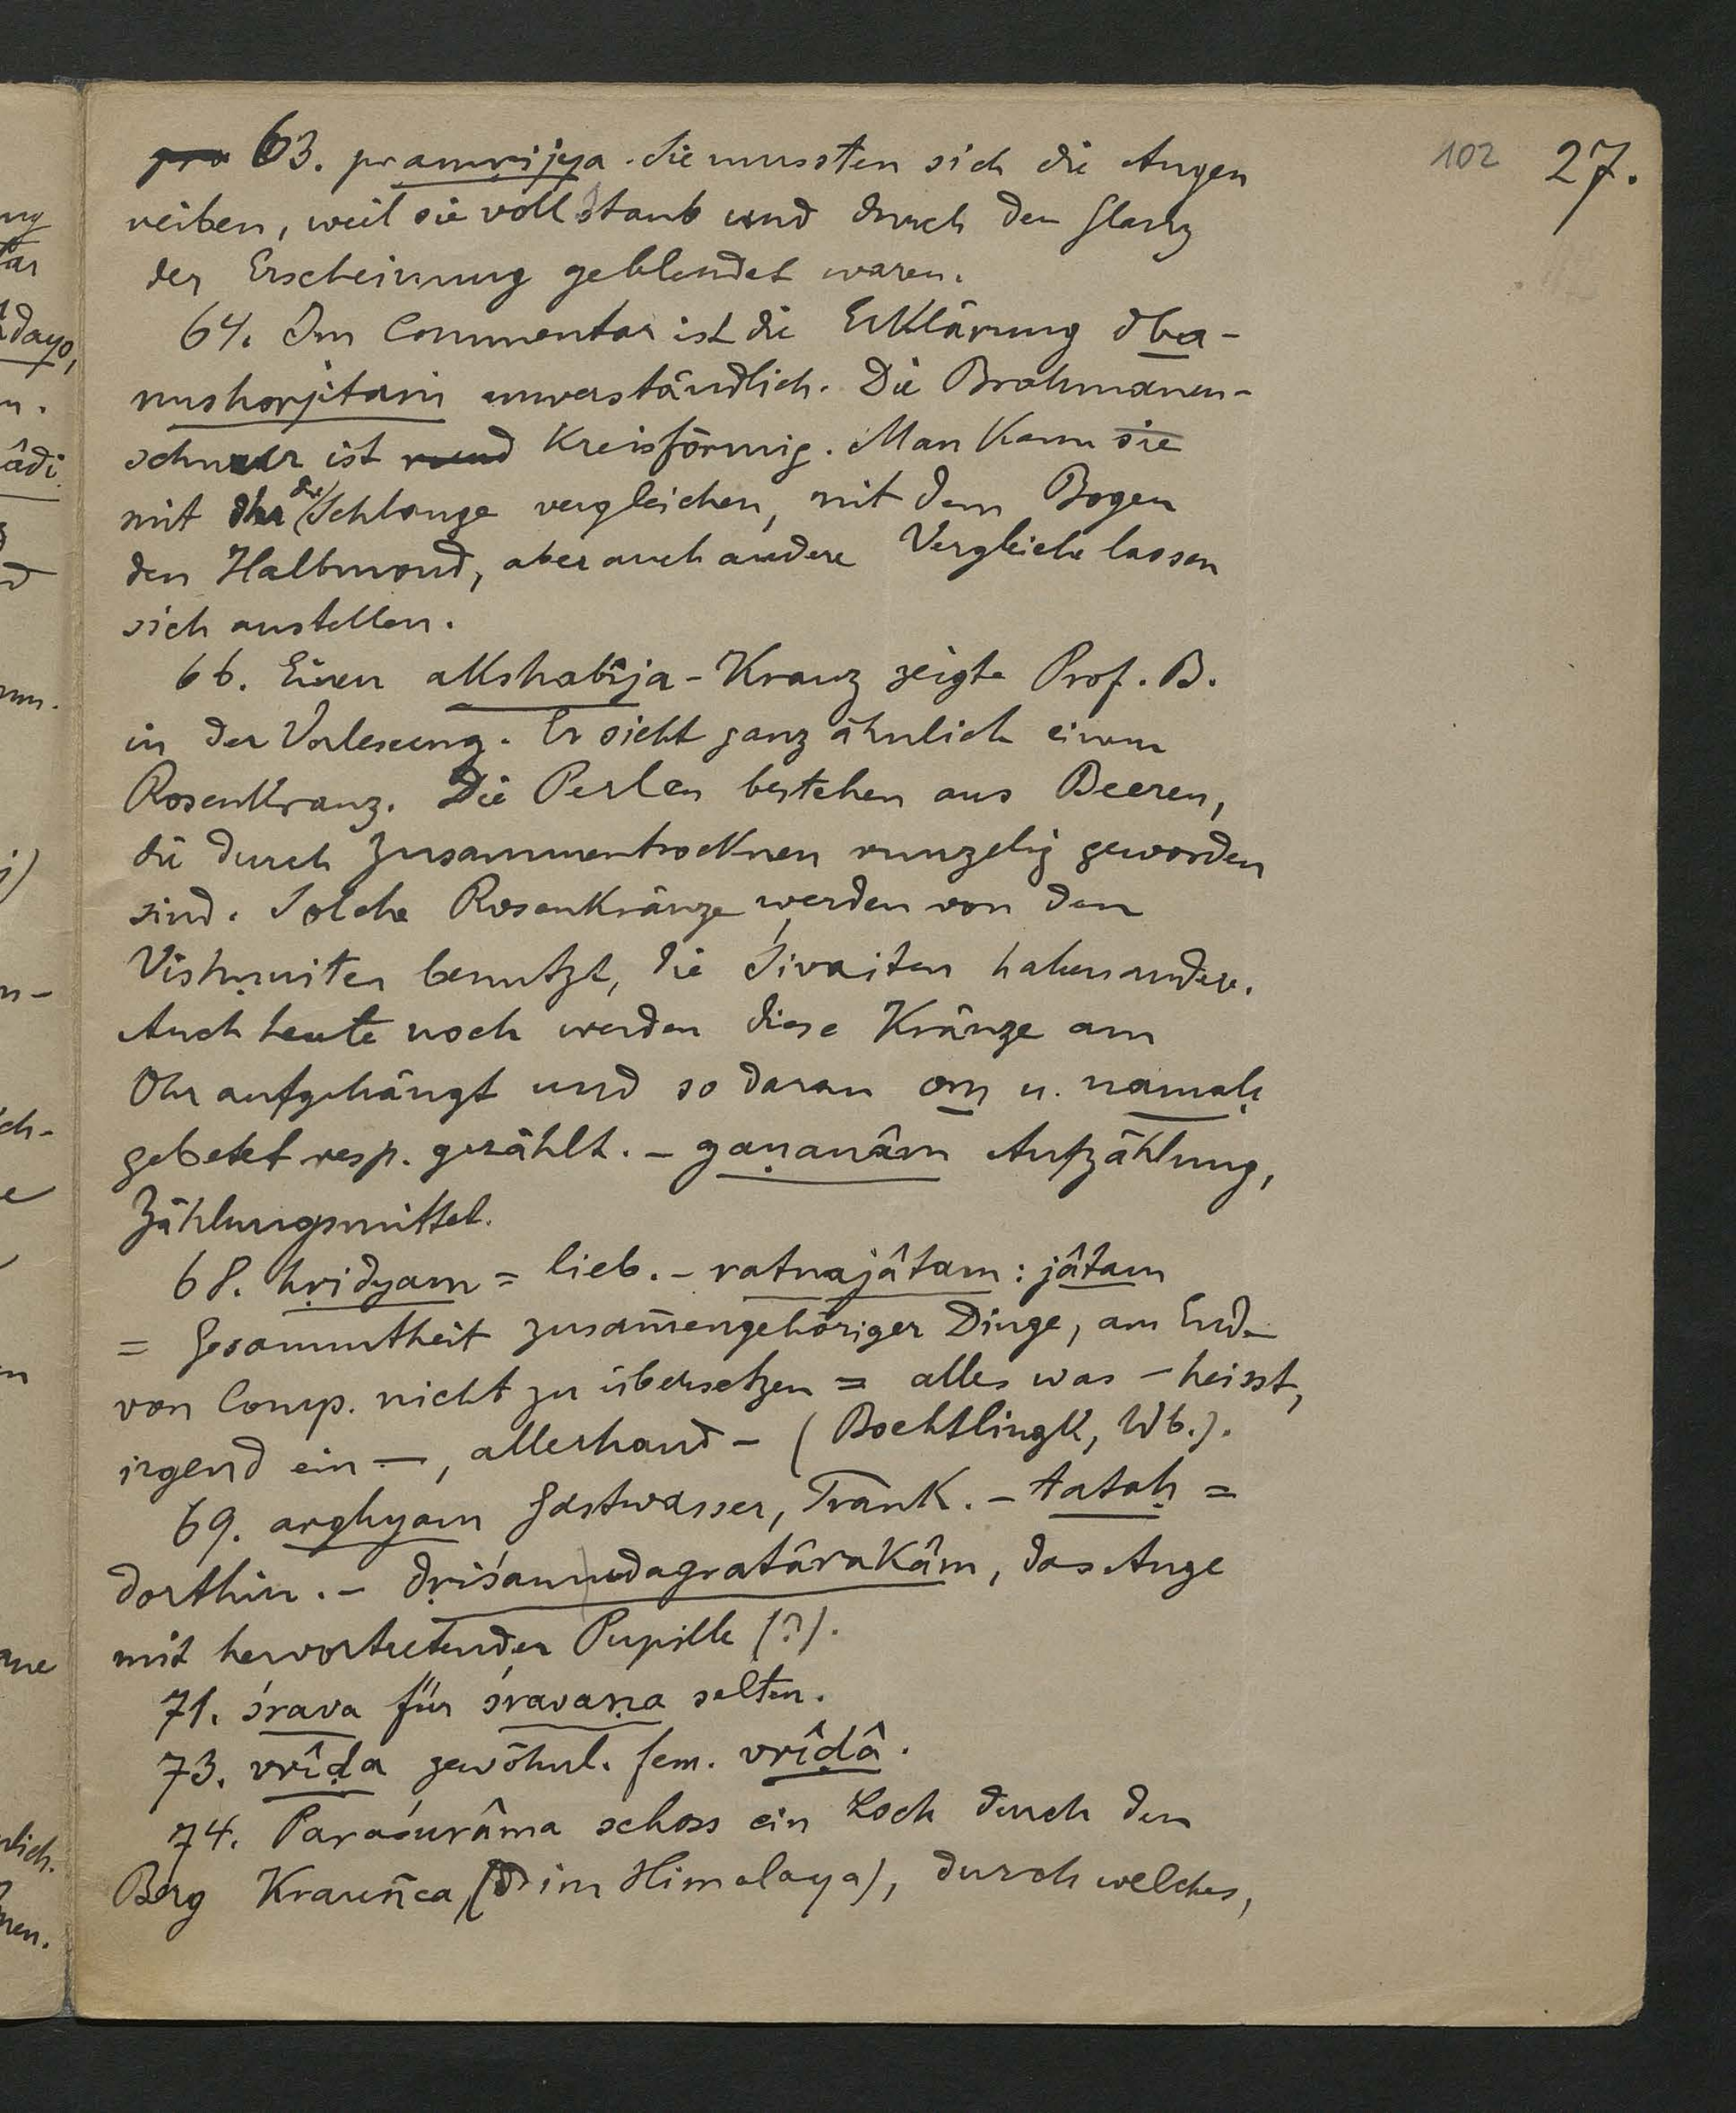 102 27.
pro 63. pramṛijya. Sie mussten sich die Augen
reiben, weil sie voll Staub und durch den Glanz
der Erscheinung geblendet waren.
64. Im Commentar ist die Erklärung dha-
nushorjitam unverständlich. Die Brahmanen-
schnur ist rund kreisförmig. Man kann sie
mit der Schlange vergleichen, mit dem Bogen
den Halbmond, aber auch andere Vergleiche lassen
sich anstellen.
66. Einen akshabîja-Kranz zeigte Prof. B.
in der Vorlesung. Er sieht ganz ähnlich einem
Rosenkranz. Die Perlen bestehen aus Beeren,
die durch Zusammentrocknen runzelig geworden
sind. Solche Rosenkränze werden von den
Vishṇuiten benutzt, die Śivaiten haben andere.
Auch heute noch werden diese Kränze am
Ohr aufgehängt und so daran om u. namaḥ
gebetet resp. gezählt. - gaṇanâm Aufzählung,
Zählungsmittel.
68. hṛidyam = lieb. - ratnajâtam: jâtam
= Gesammtheit zusam̄engehöriger Dinge, am Ende
von Comp. nicht zu übersetzen = alles was - heisst,
irgend ein -, allerhand - (Boehtlingk, Wb.).
69. arghyam Gastwasser, Trank. - tataḥ =
dorthin. - dṛiśamudagratârakâm, das Auge
mit hervortretender Pupille (?).
71. śrava für śravaṇa selten.
73. vrîḍa gewöhnl. fem. vrîḍâ.
74. Paraśurâma schoss ein Loch durch den
Berg Krauñca (im Himalaya), durch welches,